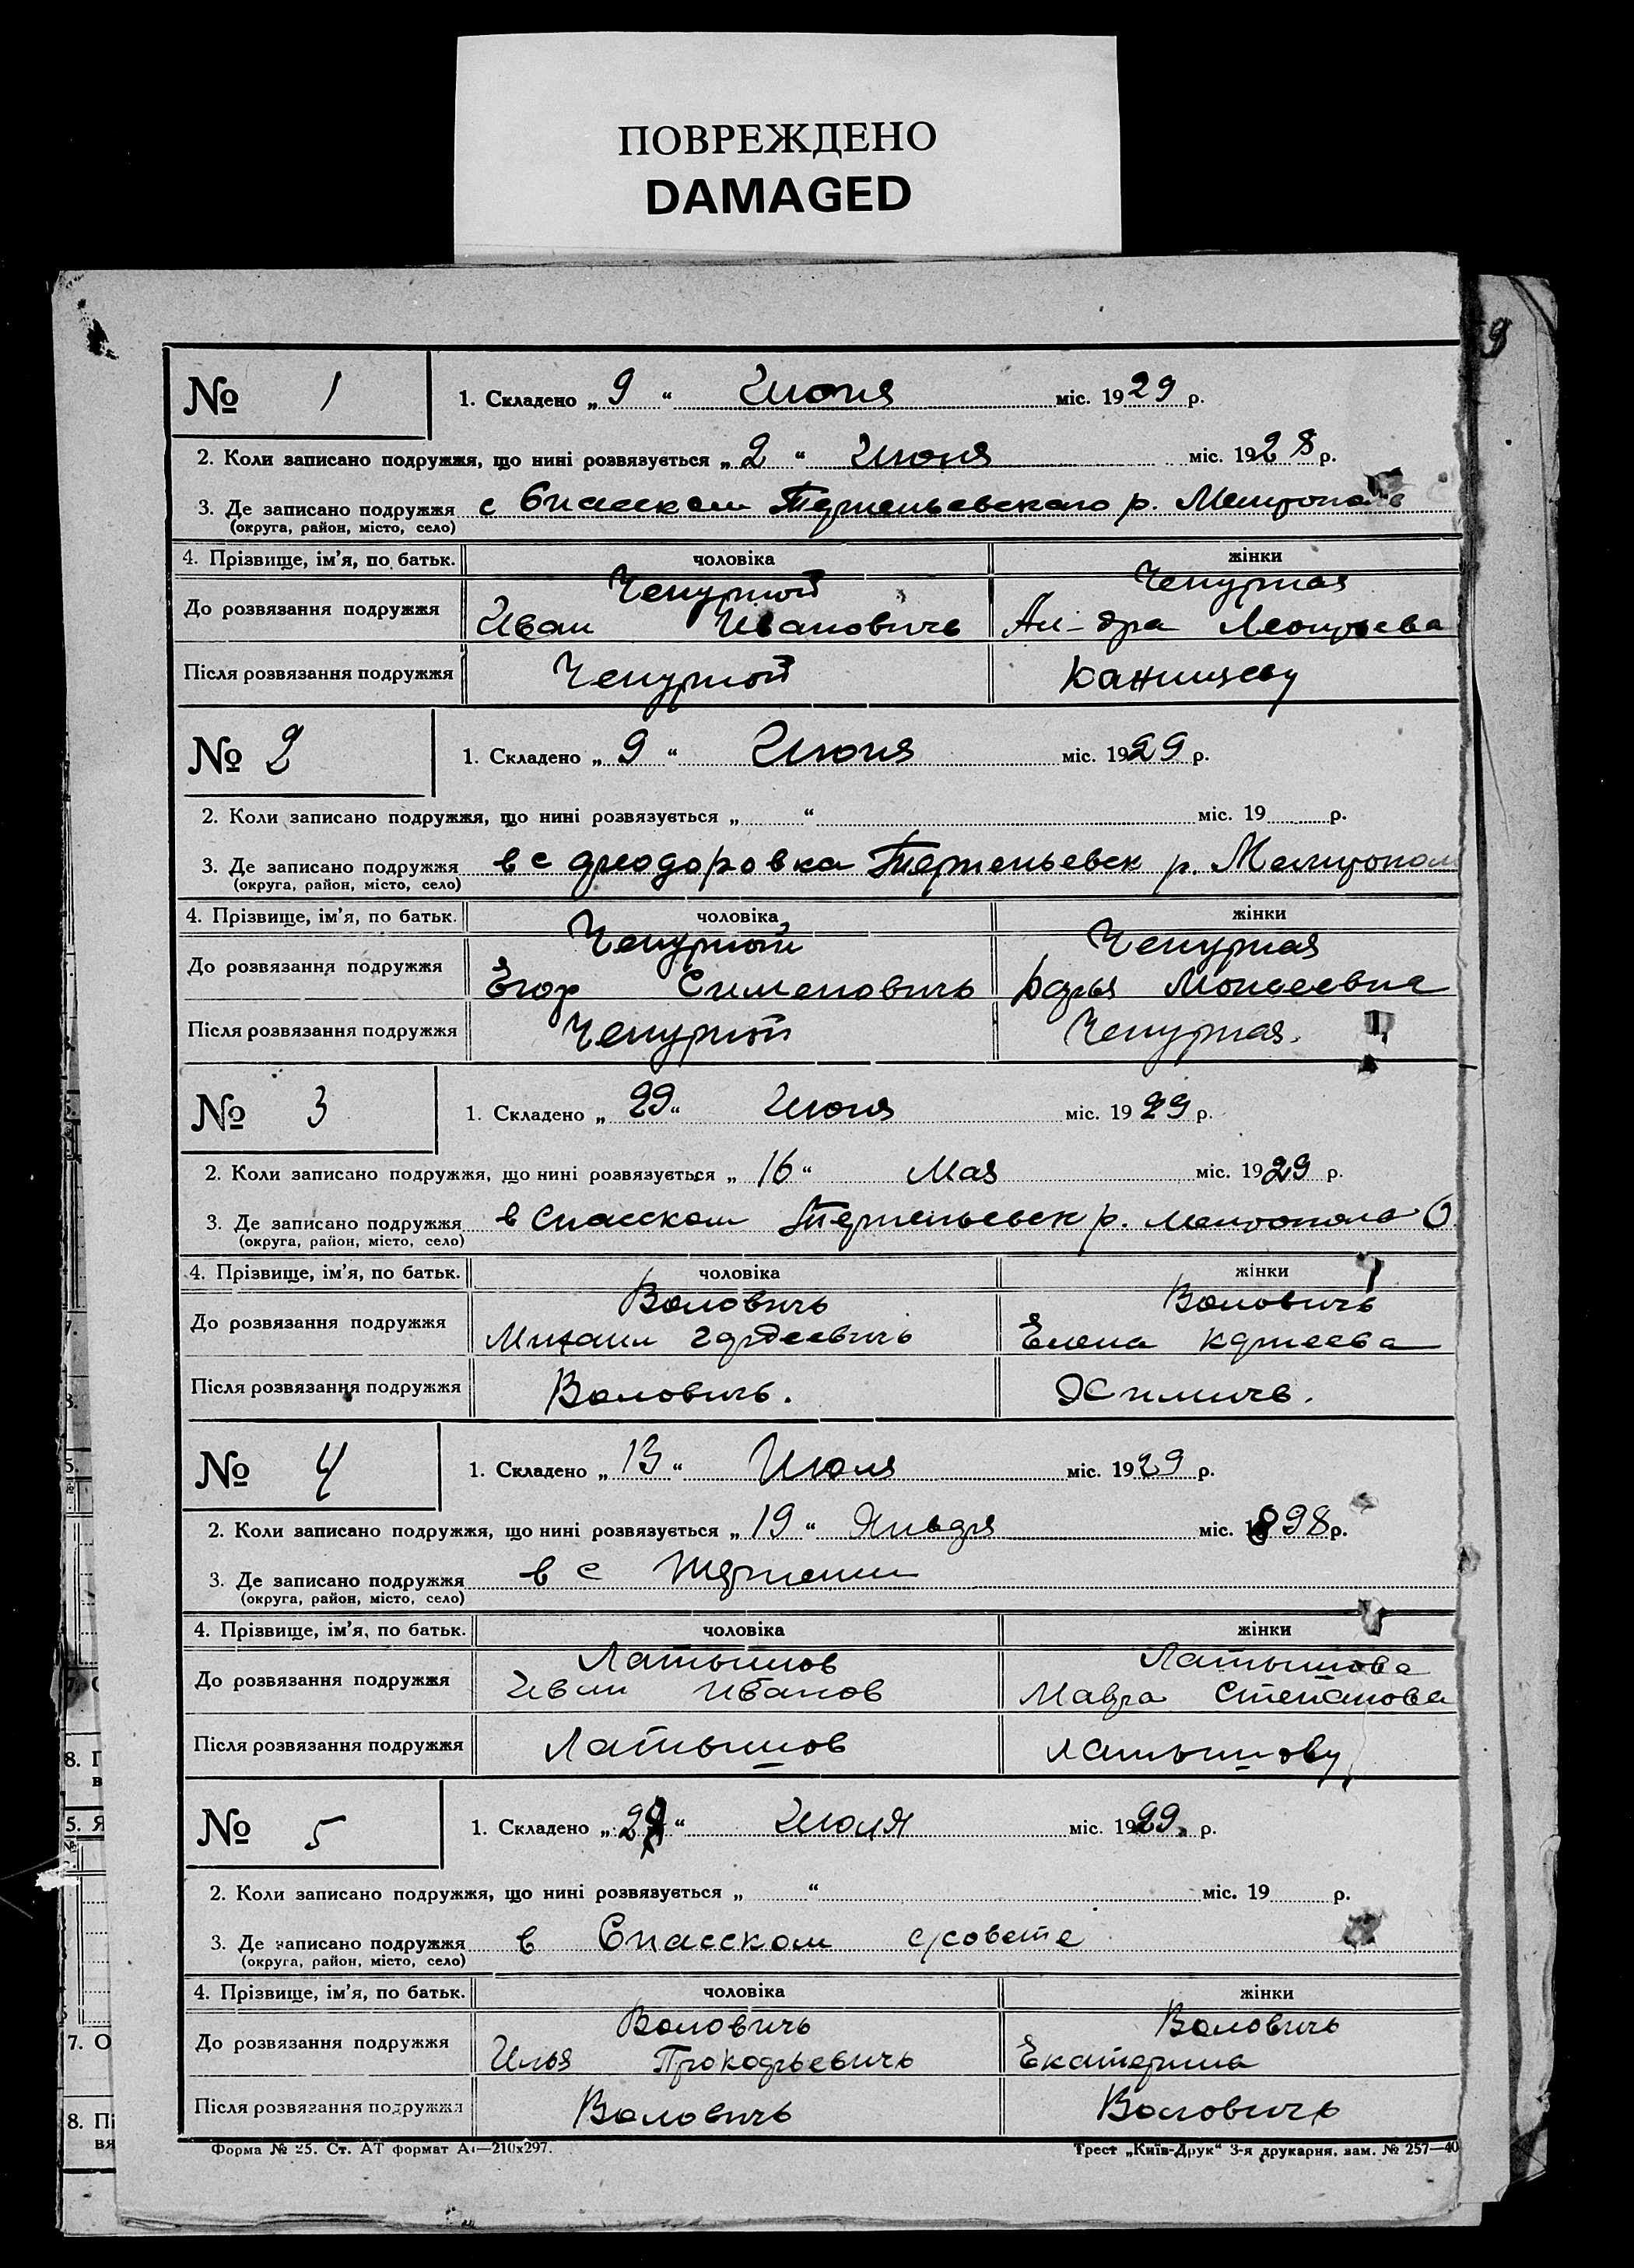 ПОВРЕЖДЕНО
DAMAGED
9
№ 1 1. Складено „ 9 “ Июня міс. 1929 р.
2. Коли записано подружжя, що нині розвязується „ 2 “ Июня міс. 1928 р.
3. Де записано подружжя с Спасском р.
(округа, район, місто, село)
4. Прізвище, ім’я, по батьк. чоловіка жінки
Чепурной Чепурная
До розвязання подружжя
Иван Ивановичь Ал-дра
Після розвязання подружжя Чепурной Канищеву
№ 2 1. Складено „ 9 “ Июня міс. 1929 р.
2. Коли записано подружжя, що нині розвязується „ “ міс. 19 р.
3. Де записано подружжя в с р.
(округа, район, місто, село)
4. Прізвище, ім’я, по батьк. чоловіка жінки
Чепурной Чепурная
До розвязання подружжя
Егор Сименовичь Моисеевна
Після розвязання подружжя Чепурной Чепурная.
№ 3 1. Складено „ 29 “ Июня міс. 1929 р.
2. Коли записано подружжя, що нині розвязується „ 16 “ Мая міс. 1929 р.
3. Де записано подружжя в Спасском р. О
(округа, район, місто, село)
4. Прізвище, ім’я, по батьк. чоловіка жінки
Воловичь Воловичь
До розвязання подружжя
Михаил Елена
Після розвязання подружжя Воловичь. Химичь.
№ 4 1. Складено „ 13 “ Июля міс. 1929 р.
2. Коли записано подружжя, що нині розвязується „ 19 “ Января міс. 1898 р.
3. Де записано подружжя в с
(округа, район, місто, село)
4. Прізвище, ім’я, по батьк. чоловіка жінки
Латышов Латышова
До розвязання подружжя
Иван Иванов Мавра Степанова
Після розвязання подружжя Латышов Латышову
№ 5 1. Складено „ “ Июля міс. 1929 р.
2. Коли записано подружжя, що нині розвязується „ “ міс. 19 р.
3. Де записано подружжя в Спасском с/совете
(округа, район, місто, село)
4. Прізвище, ім’я, по батьк. чоловіка жінки
Воловичь Воловичь
До розвязання подружжя
Илья Прокофьевичь Екатерина
Після розвязання подружжя Воловичь Воловичь
Форма № 25. Ст. АТ формат А4—210х297. Трест „Київ-Друк“ 3-я друкарня, зам. № 257—40